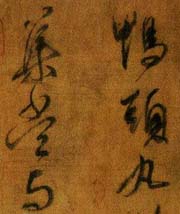 鴨頭丸
集當与